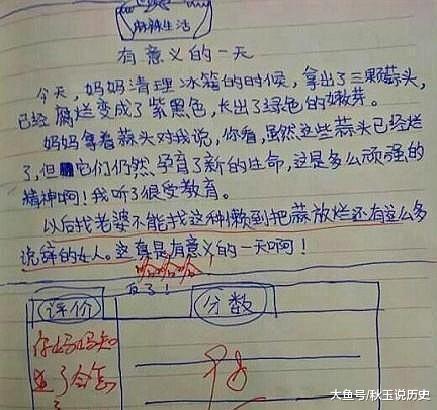 麻辣生活
有意义的一天
今天,妈妈清理冰箱的时候,拿出了三颗蒜头,
已经腐烂变成了紫黑色,长出了绿色的嫩芽。
妈妈拿着蒜头对我说,你看,虽然这些蒜头已经烂
了,但它们仍然孕育了新的生命,这是多么顽强的
精神啊!我听了很受教育。
以后找老婆不能找这种懒到把蒜放烂还有这么多
说辞的女人。这真是有意义的一天啊!
哈哈哈
反了!
评价
分数
你妈妈知
道了会怎
大鱼号/秋玉说历史